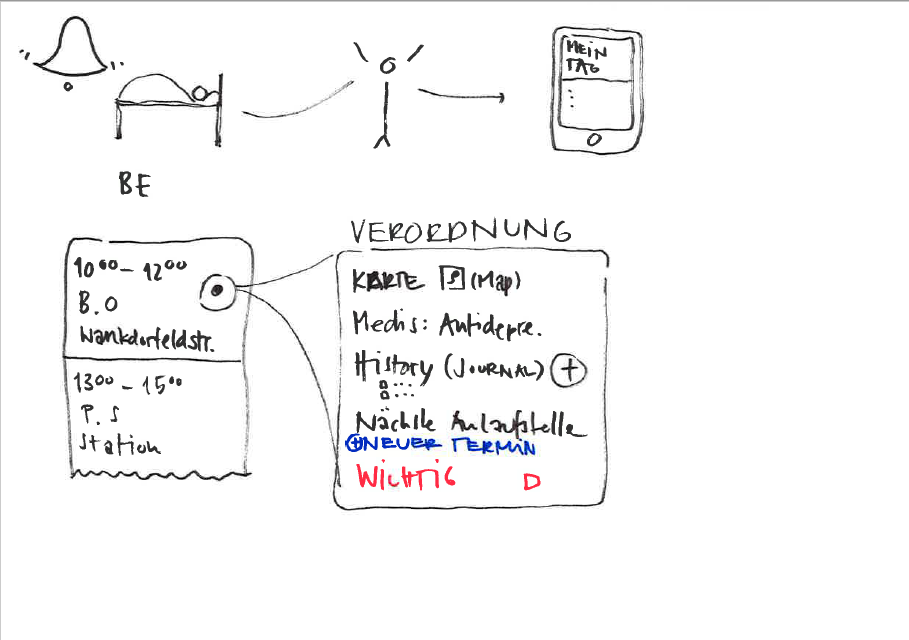 MEIN
TAG
BE
10⁰⁰ - 12⁰⁰
B.O
Wankdorfeldstr.
13⁰⁰ - 15⁰⁰
P.S
Station
VERORDNUNG
KARTE (Map)
Medis: Antidepre.
History (JOURNAL) +
Nächste Anlaufstelle
+ NEUER TERMIN
WICHTIG